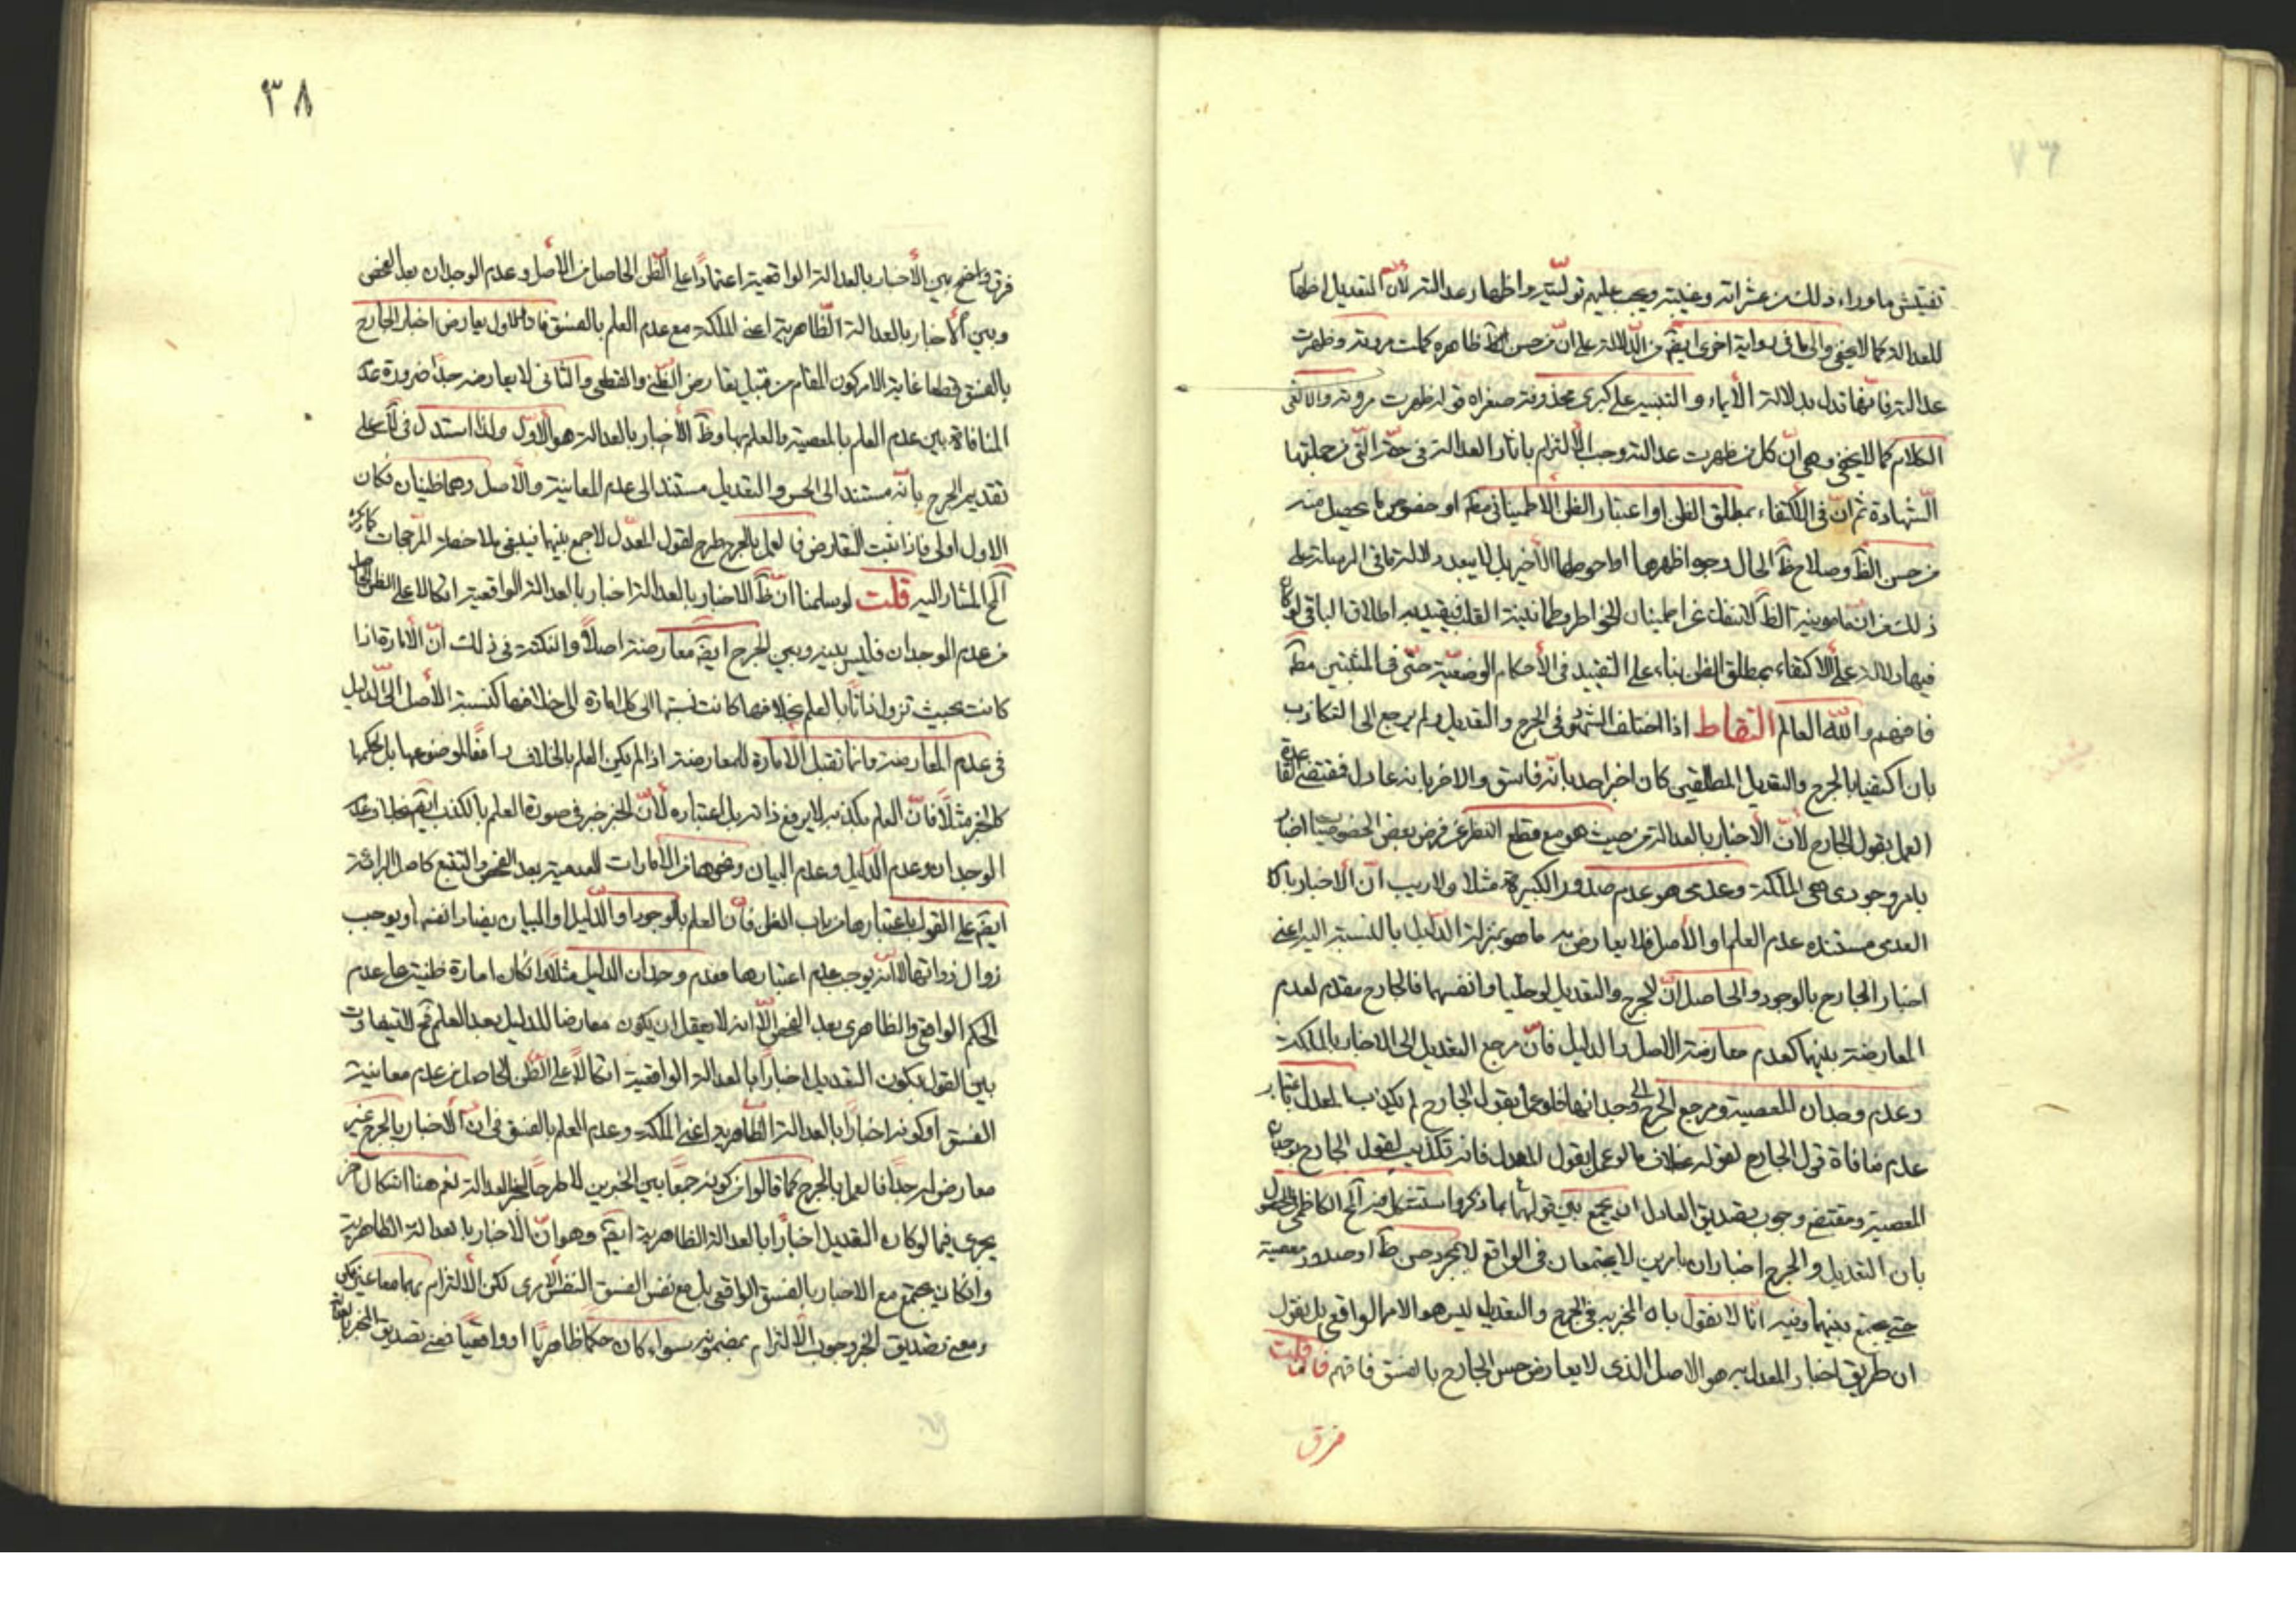 تفتيش ماوراء ذلك من عثراته وغيبته ويجب عليهم توليته واظهار عدالته لأن التعديل اظهار
للعدالة كما لا يخفى والى ما فى رواية اخرى ايضم من الدلالة على ان من حسن ظاهره كملت مروته وظهرت
عدالته فانها تدل بدلالة الأيماء والتنبيه على كبرى محذوفة صغراه قوله ظهرت مروته والا لغى
الكلام كما لا يخفى وهى ان كل من ظهرت عدالته وجب الالتزام باثار العدالة فى حقه التى من جملتها
الشهادة ثم ان فى الاكتفاء بمطلق الظن او اعتبار الظن الاطمينانى مظم او خصوص ما يحصل منه
من حسن الظ وصلاح ظ الحال وجوه اظهرها او احوطها الأخير بل لا يبعد دلالة ما فى الرسالة على
ذلك من ان مأمونية الظ لا تنفك عن اطمينان الخواطر وطمانينة القلب فيقيد به اطلاق الباقى لو كان
فيها دلالة على الاكتفاء بمطلق الظن بناء على التقييد فى الأحكام الوضعية حتى فى المثبتين مظم
فافهم والله العالم التقاط اذا اختلف الشهود فى الجرح والتعديل ولم يرجع الى التكاذب
بان اكتفينا بالجرح والتعديل المطلقين كان اخبر احد بانه فاسق والاخر بانه عادل فمقتضى القاعدة
العمل بقول الجارح لأن الأخبار بالعدالة من حيث هو مع قطع النظر عن فرض بعض الخصوصيات اخبار
بامر وجودى هى الملكة وعدمى هو عدم صدور الكبيرة مثلا ولا ريب ان الأخبار بالامر
العدمى مستنده عدم العلم او الأصل فلا يعارض به ما هو بمنزلة الدليل بالنسبة اليه اعنى
اخبار الجارح بالوجود والحاصل ان الجرح والتعديل لو خليا وانفسهما فالجارح مقدم لعدم
المعارضة بينهما كعدم معارضة الاصل والدليل فان مرجع التعديل الى الاخبار بالملكة
وعدم وجدان المعصية ومرجع الجرح الى وجدانها فلو عمل بقول الجارح لم يكذب المعدل باعتبار
عدم منافاة قول الجارح لقوله بخلاف ما لو عمل بقول المعدل فانه تكذيب لقول الجارح بوجدان
المعصية ومقتضى وجوب تصديق العادل ان يجمع بين قولهما بما ذكر واستشكل فيه الح الكاظمى
بان التعديل والجرح اخباران بامرين لا يجتمعان فى الواقع لا بمجرد حسن ظ او صدور معصية
حتى يجتمع بينهما وفيه انا لا نقول بان المخبر به فى الجرح والتعديل ليس هو الامر الواقعى بل نقول
ان طريق اخبار المعدل به هو الاصل الذى لا يعارض حسن الجارح بالفسق فافهم فان قلت
فرق
٣٨
فرق واضح بين الأخبار بالعدالة الواقعية اعتمادا على الظن الحاصل من الأصل وعدم الوجدان بعد الفحص
وبين الأخبار بالعدالة الظاهرية اعنى الملكة مع عدم العلم بالفسق فالاول يعارض اخبار الجارح
بالفسق قطعا غاية الامر كون المقام من قبيل تعارض الظنى والقطعى والثانى لا يعارضه جدا ضرورة عدم
المنافاة بين عدم العلم بالمعصية والعلم بها وظ الأخبار بالعدالة هو الاول ولذا استدل فى على
تقديم الجرح بانه مستند الى الحس والتعديل مستند الى عدم المعاينة والأصل وهما ظنيان فكان
الاول اولى فاذا ثبت التعارض فالعمل بالجرح طرح لقول المعدل لا جمع بينهما فينبغى ملاحظة المرجحات كما ذكره
الح المشار اليه قلت لو سلمنا ان ظ الاخبار بالعدالة اخبار بالعدالة الواقعية اتكالا على الظن الحاصل
من عدم الوجدان فليس بينه وبين الجرح ايضم معارضة اصلا والنكتة فى ذلك ان الأمارة اذا
كانت بحيث تزول ذاتا بالعلم بخلافها كانت نسبتها الى كل امارة الى خلافها كنسبة الأصل الى الدليل
فى عدم المعارضة وانما تقبل الامارة للمعارضة اذا لم يكن العلم بالخلاف رافعا لموضوعها بل لحكمها
كالخبر مثلا فان العلم بكذبه لا يرفع ذاته بل اعتباره لأن الخبر خبر فى صورة العلم بالكذب ايضم بخلاف عدم
الوجدان وعدم الدليل وعدم البيان ونحوها من الأمارات العدمية بعد الفحص والتتبع كاصل البرائة
ايضم على القول باعتبارها من باب الظن فان العلم بالوجود او الدليل او البيان يضاد انفسها ويوجب
زوال ذواتها لا انه يوجب عدم اعتبارها فعدم وجدان الدليل مثلا وان كان امارة ظنية على عدم
الحكم الواقعى والظاهرى بعد الفحص الا انه لا يعقل ان يكون معارضا للدليل بعد العلم فح لا تفاوت
بين القول بكون التعديل اخبارا بالعدالة الواقعية اتكالا على الظن الحاصل من عدم معاينة
الفسق او كونه اخبارا بالعدالة الظاهرية اعنى الملكة وعدم العلم بالفسق فى ان الأخبار بالجرح غير
معارض له جدا فالعمل بالجرح كما قالوا من كونه جمعا بين الخبرين لا طرحا لخبر العدالة نعم هنا اشكال اخر
يجرى فيما لو كان التعديل اخبارا بالعدالة الظاهرية ايضم وهو ان الاخبار بالعدالة الظاهرية
وان كان يجتمع مع الاخبار بالفسق الواقعى بل مع نفس الفسق النفس الامرى لكن الالتزام بهما معا غير ممكن
ومعنى تصديق الخبر وجوب الالتزام بمضمونه سواء كان حكما ظاهريا او واقعيا فمعنى تصديق المخبر